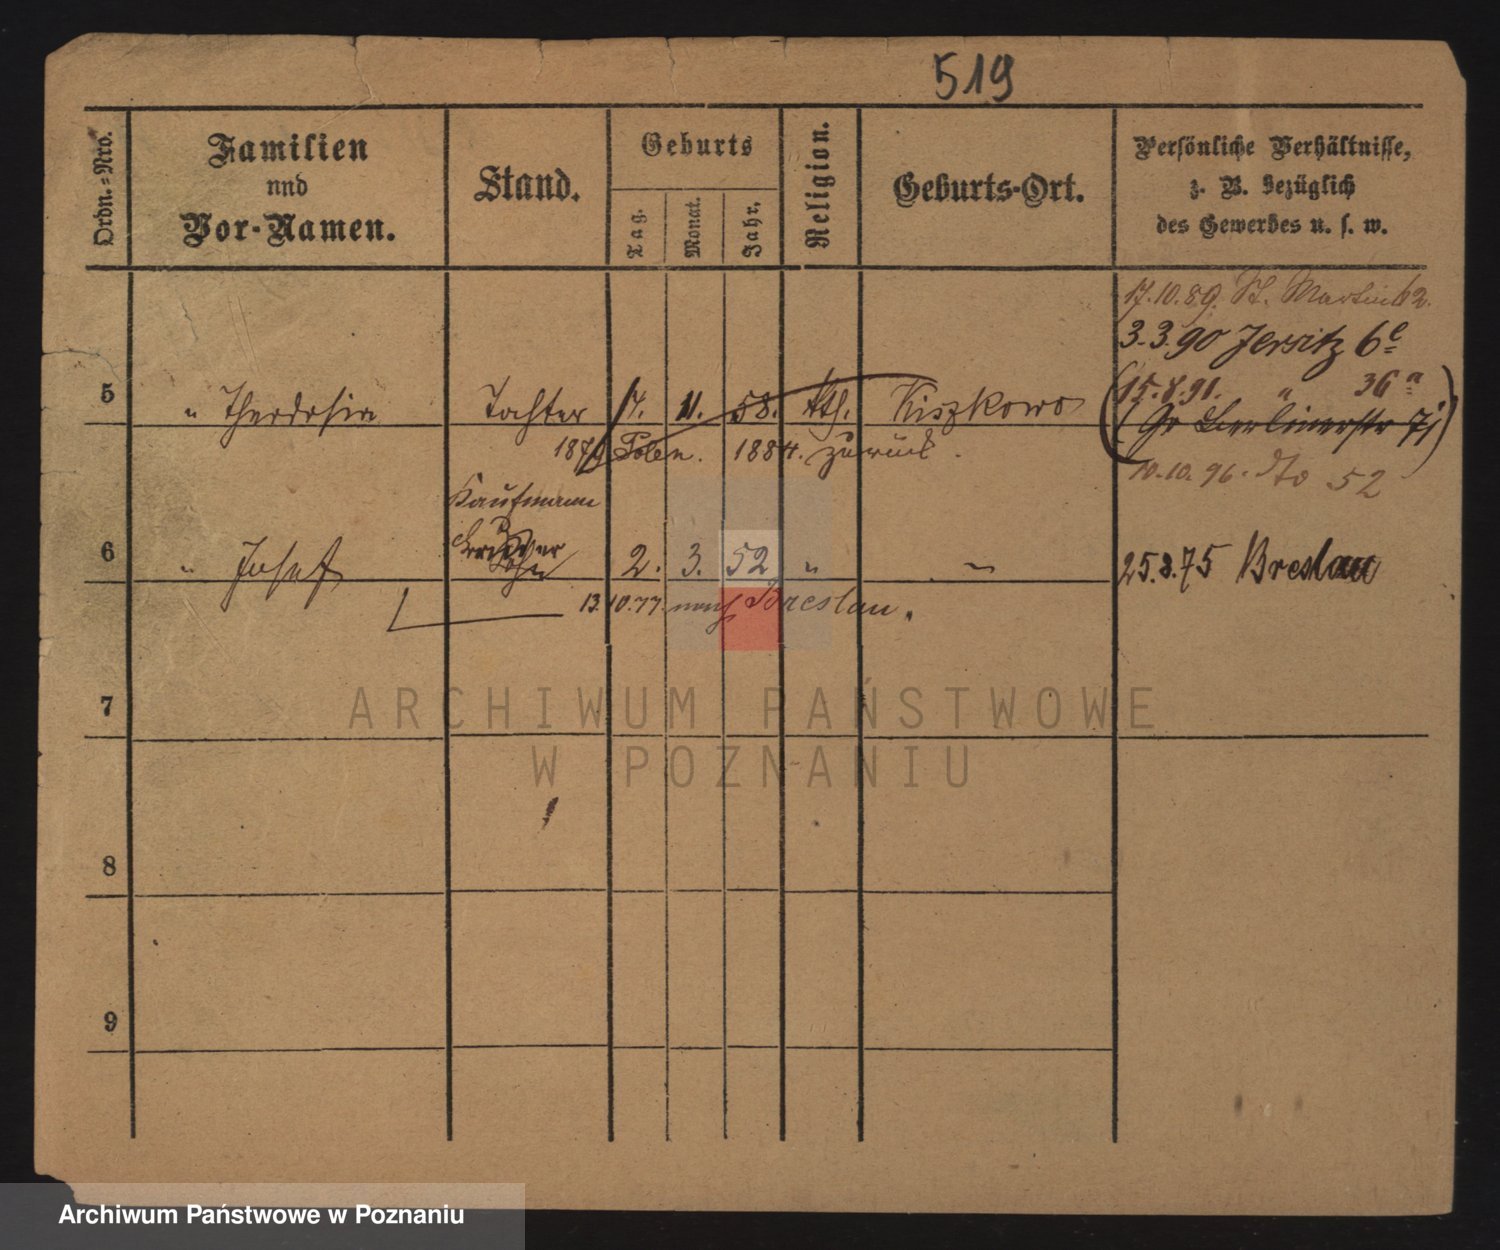 519
Ordn.=Nro.
Familien
und
Vor-Namen.
Stand.
Geburts
Tag.
Monat.
Jahr.
Religion.
Geburts-Ort.
Persönliche Verhältnisse,
z. B. bezüglich
des Gewerbes u. s. w.
17.10.89. St. Martin 62.
3.3.90 Jersitz 6c
15.8.91. " 36a
(Gr Berlinerstr 7)
10.10.96. dto 52
5 " Theodosia Tochter 17. 11. 58. kth. Kiszkowo
1879 Polen. 1884. zurück.
Kaufmann
6 " Josef Sohn 2. 3. 52 " " 25.8.75 Breslau
13.10.77. nach Breslau.
7
8
9
ARCHIWUM PAŃSTWOWE
W POZNANIU
Archiwum Państwowe w Poznaniu